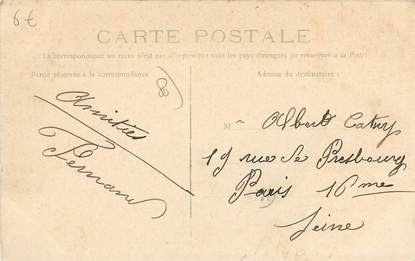 6€
CARTE POSTALE
La correspondance au recto n'est pas acceptée par tous les pays étrangers (se renseigner à la Poste)
Partie réservée à la correspondance
Adresse du destinataire :
80
Amitiés
Fernand
M Albert
19 rue de Presbourg
Paris 16me
Seine